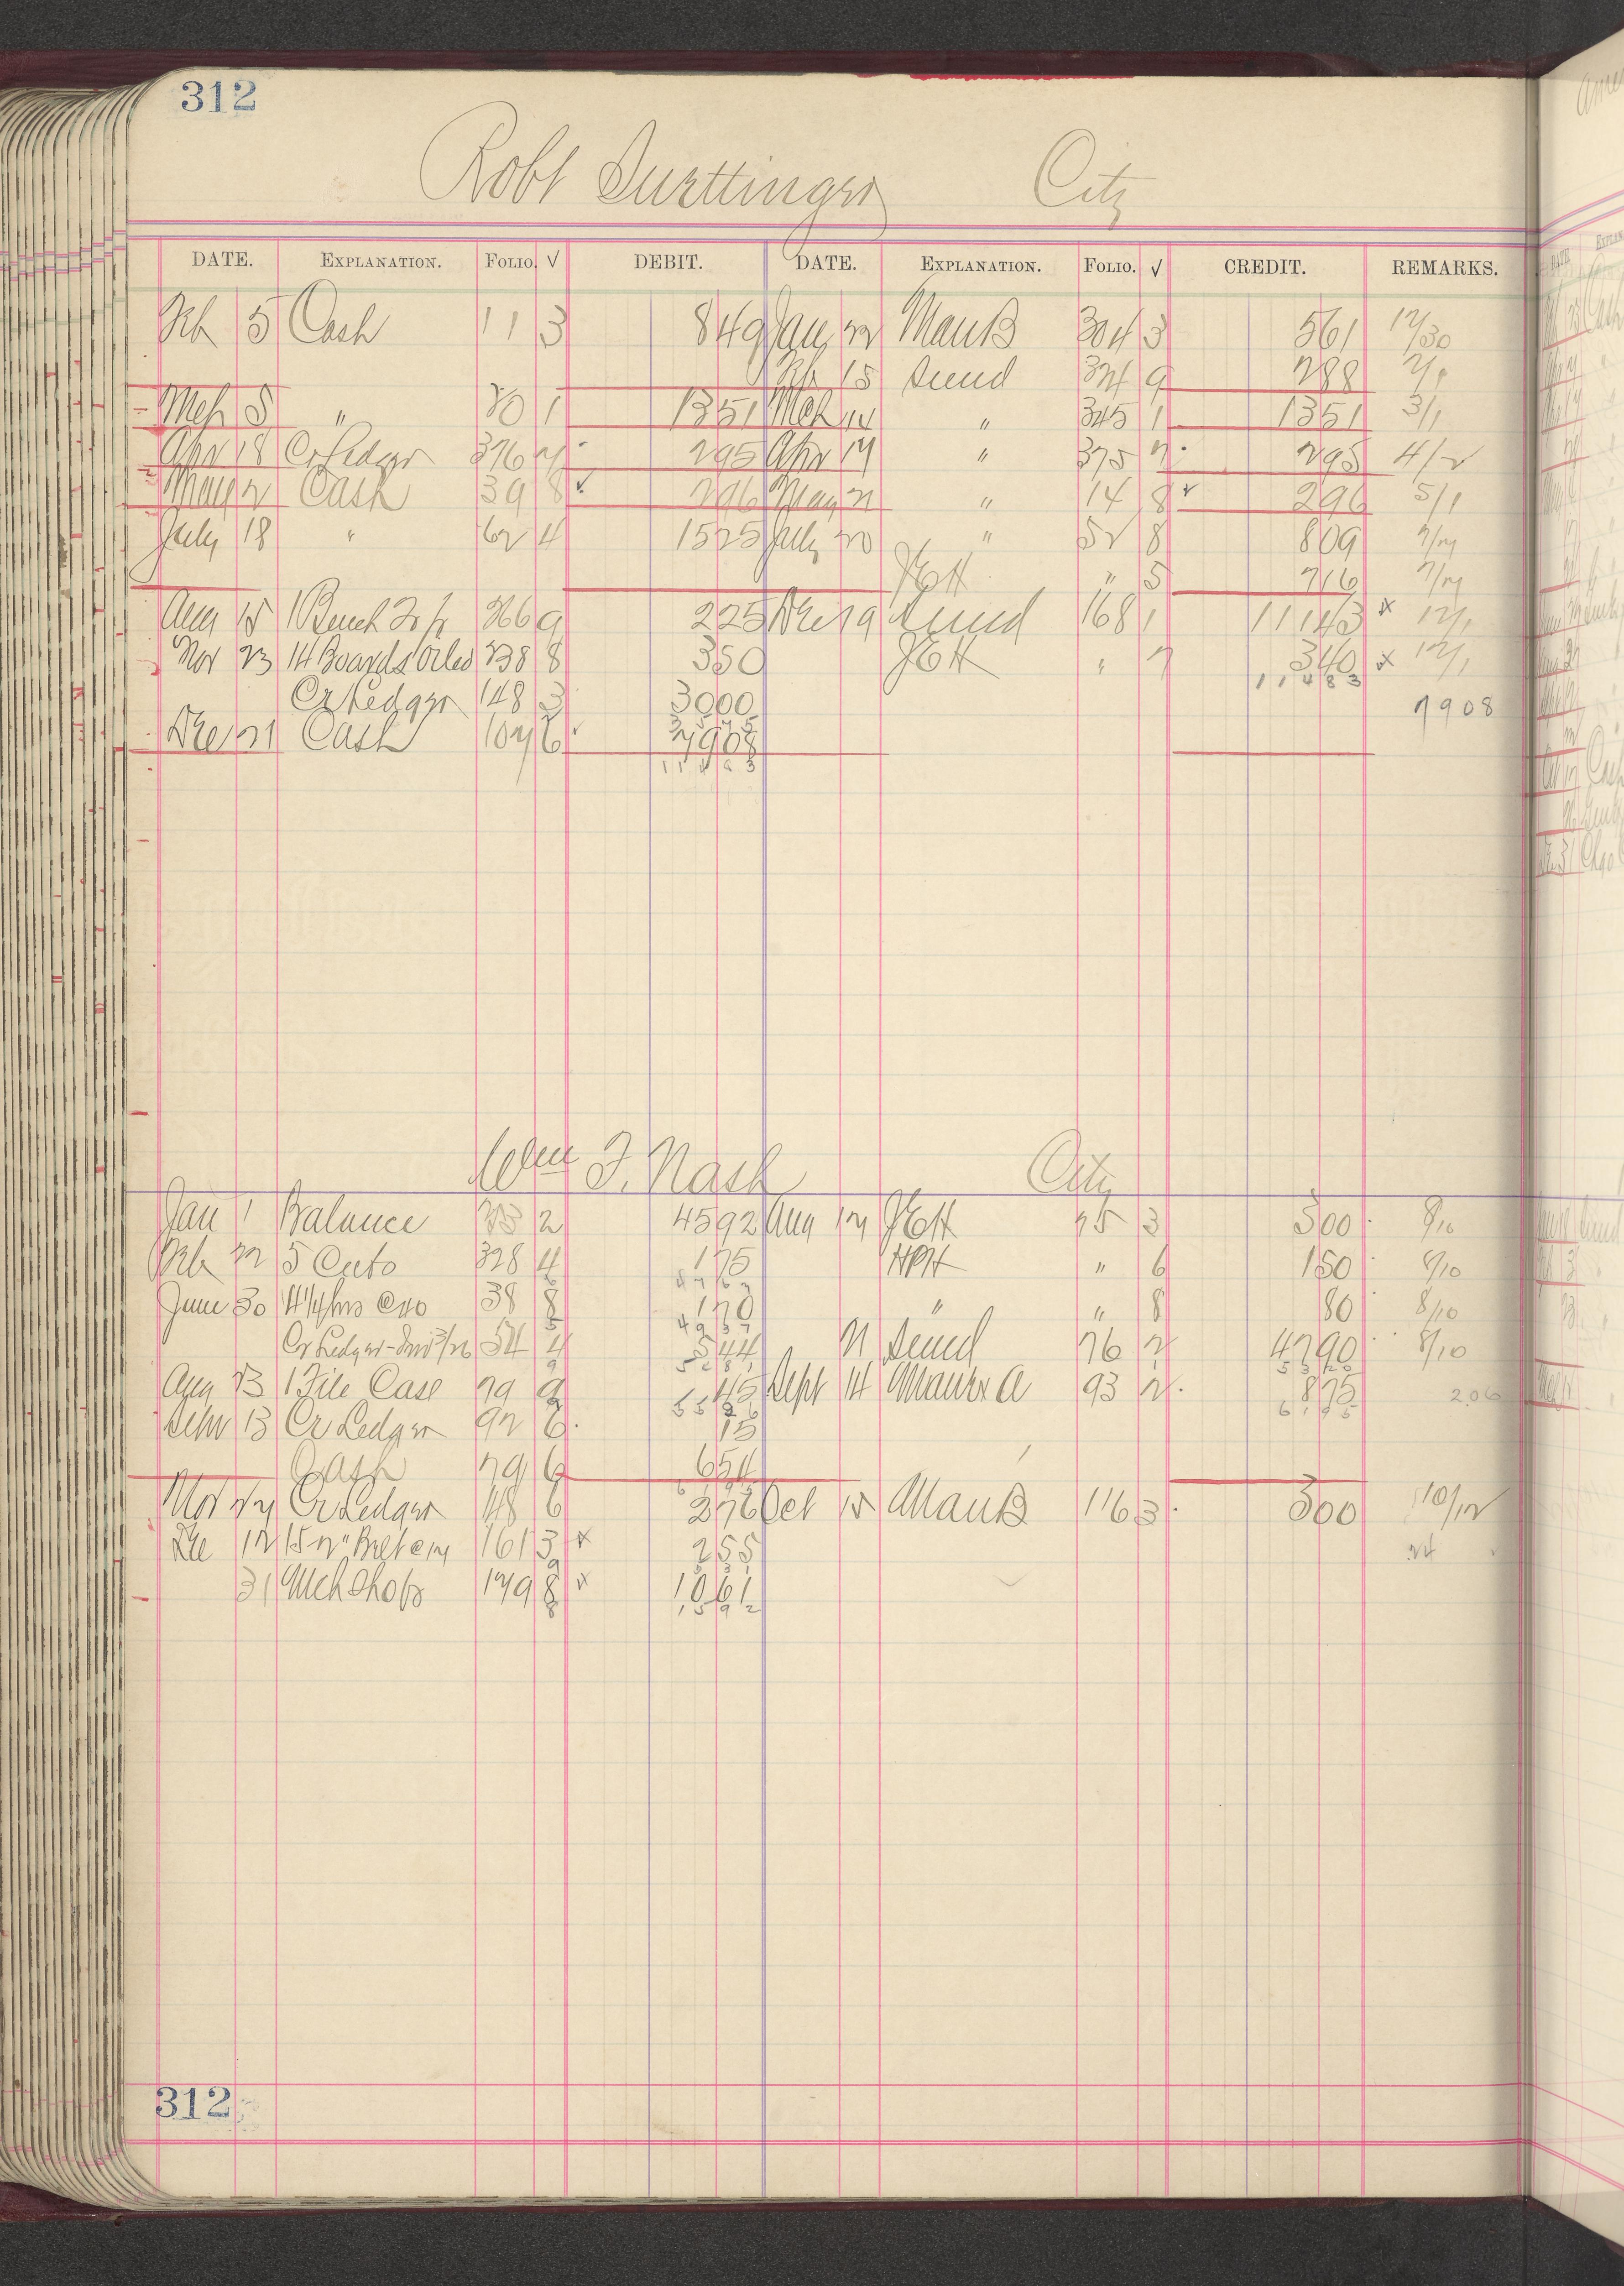 312
Robt Surttinger City
DATE. EXPLANATION. FOLIO. √ DEBIT. DATE. EXPLANATION. FOLIO. √ CREDIT. REMARKS.
Feb 5 Cash 11 3 849 Jan 22 ManB 304 3 561 12/30
Feb 15 Sund 324 9 288 2/1
Mch 5 " 20 1 1351 Mch 14 " 345 1 1351 3/1
Apr 18 Cr Ledger 376 295 Apr 17 " 375 295 4/2
May 2 Cash 39 8 √ 296 May 21 " 14 8 √ 296 5/1
July 18 " 62 4 1525 July 20 " 52 8 809 7/7
JEH " 5 716 7/7
Aug 15 1 Bench 366 9 225 Dec 19 Sund 168 1 11143 x 12/1
Nov 23 14 Boards Oiled 238 8 350 JEH " 7 340 x 12/1
11483
Cr Ledger 148 3 3000 7908
3575
Dec 21 Cash 107 6 7908
11483
Wm F. Nash City
Jan 1 Balance 2 4592 Aug 17 JEH 75 3 500 8/10
Feb 22 5 Cuts 328 4 175 HPH " 6 150 8/10
4767
June 30 4 1/4 hrs @40 38 8 170 " " 8 80 8/10
4937
Cr Ledger - Inv 3/26 54 4 544 21 Sund 76 2 4790 8/10
Aug 23 1 File Case 79 9 45 Sept 14 Manex A 93 2 875 206
5526 6195
Sept 13 Cr Ledger 92 6 15
Cash 79 6 654
Nov 27 Cr Ledger 148 6 276 Oct 15 ManB 116 3 500 10/12
Dec 12 15 2" Belt 161 3 x 255 24
31 Mch Shop 179 8 x 1061
1592
312